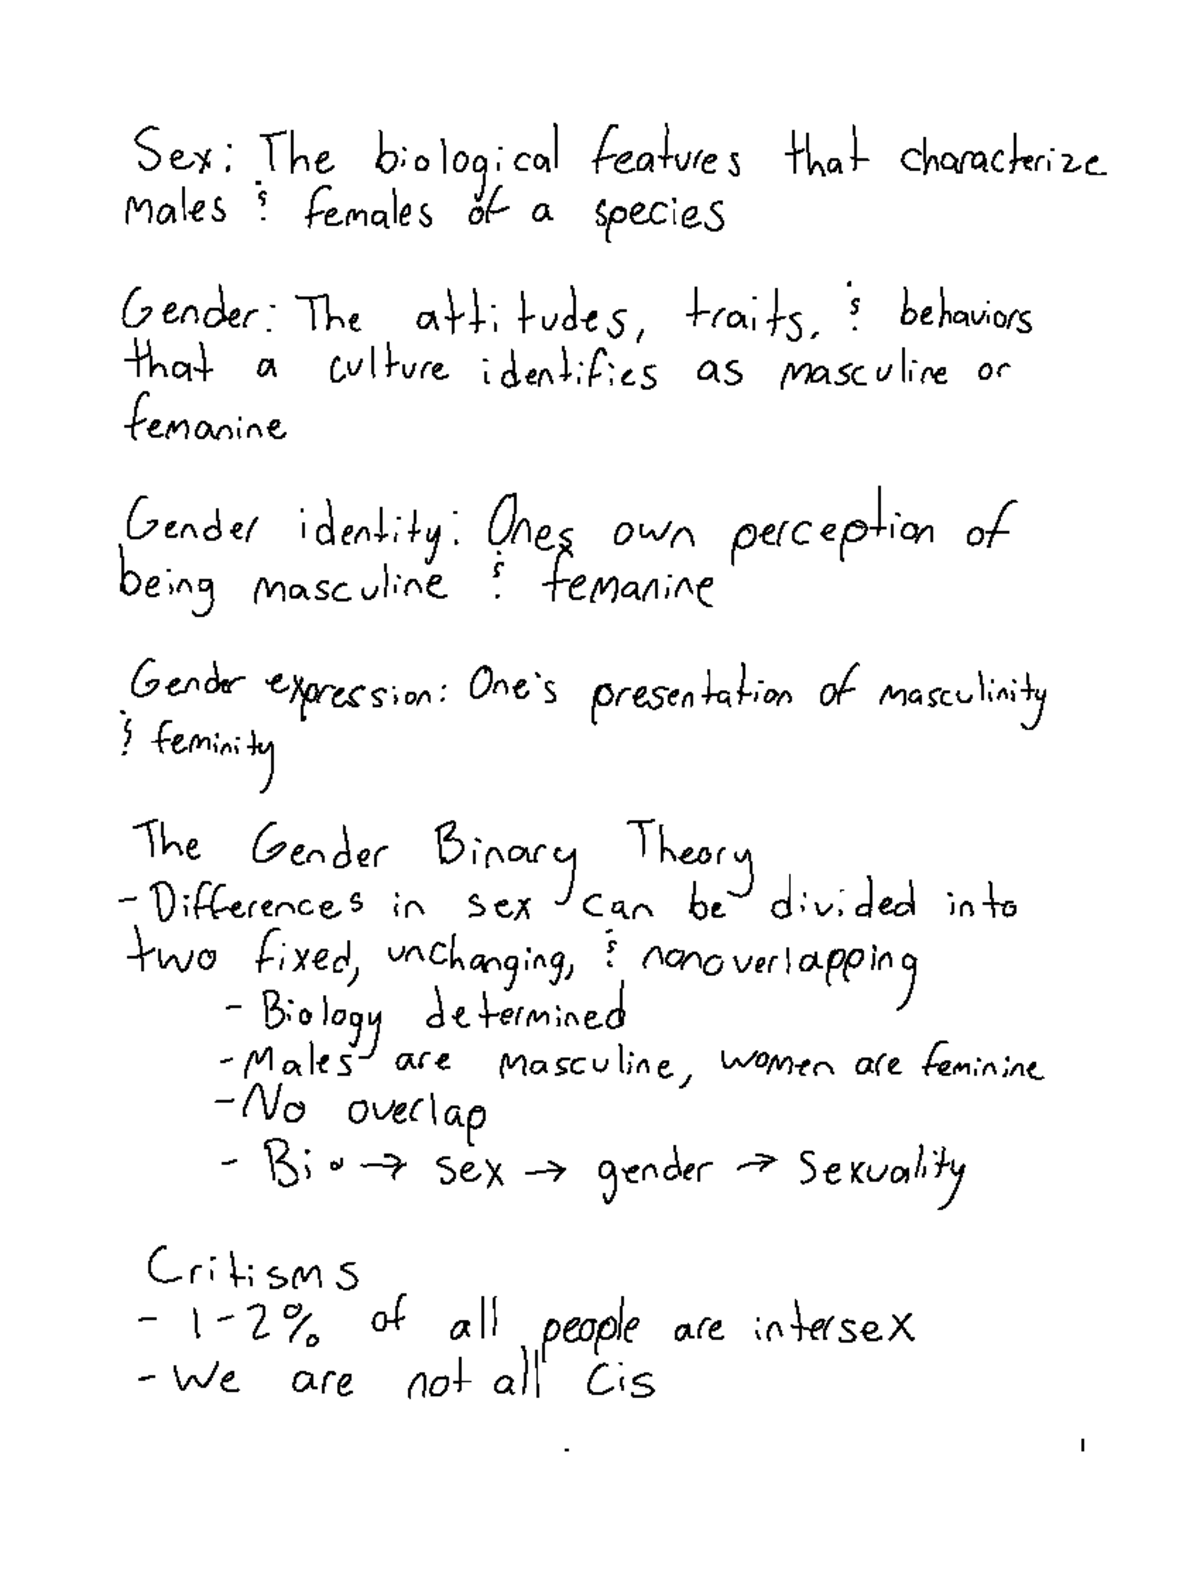 Sex: The biological features that characterize
males & females of a species
Gender: The attitudes, traits, & behaviors
that a culture identifies as masculine or
femanine
Gender identity: Ones own perception of
being masculine & femanine
Gender expression: One's presentation of masculinity
& feminity
The Gender Binary Theory
- Differences in sex can be divided into
two fixed, unchanging, & nonoverlapping
- Biology determined
- Males are masculine, women are feminine
- No overlap
- Bio → sex → gender → Sexuality
Critisms
- 1-2% of all people are intersex
- We are not all Cis
1